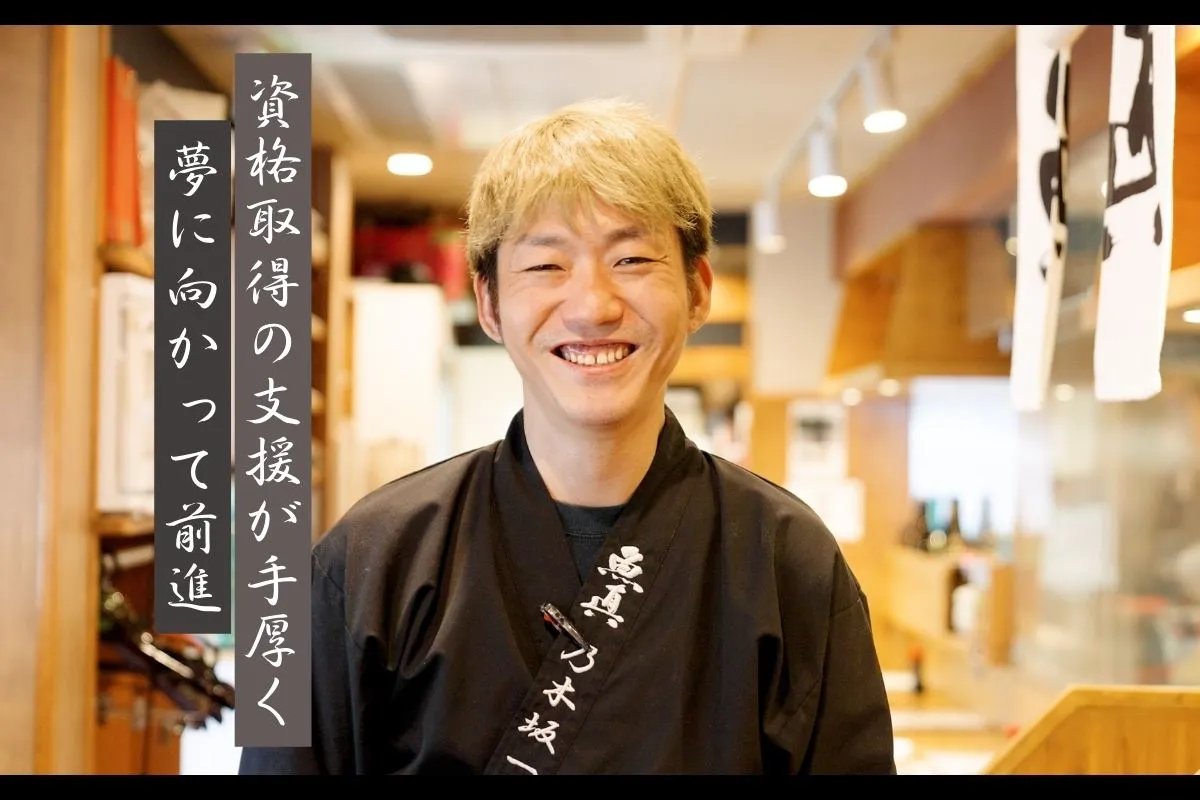 資格取得の支援が手厚く
夢に向かって前進
魚真 乃木坂